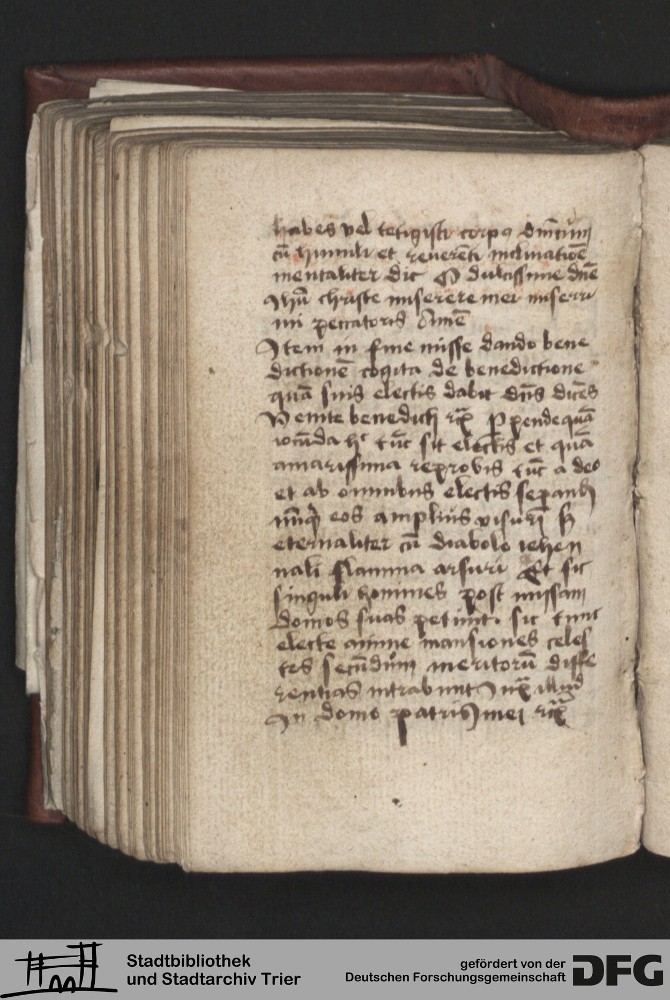 habes vel tetigisti corpꝰ dm̄cum
cū humili et reuerēti inclinatiōē
mentaliter dic O dulcissime dn̄e
Jhū christe miserere mei miserri
mi peccatoris Amē
Item in fine misse dando bene
dictionē cogita de benedictione
quā suis electis dabit dn̄s dicēs
Venite benedicti rꝫ Perpende quā
iocūda hec tūc sit electis et quā
amarissima reprobis tūc a deo
et ab omnibus electis seꝑandi
nūqꝫ eos amplius visuri sꝫ
eternaliter cū diabolo iehen
nali flamma arsuri Et sic
singuli homines post missam
domos suas petunt. sic tunc
electe anime mansiones celes
tes secūdum meritorū diffe
rentias intrabunt Juxͣ illud
In domo patris mei rꝫ
Stadtbibliothek
und Stadtarchiv Trier
gefördert von der
Deutschen Forschungsgemeinschaft
DFG